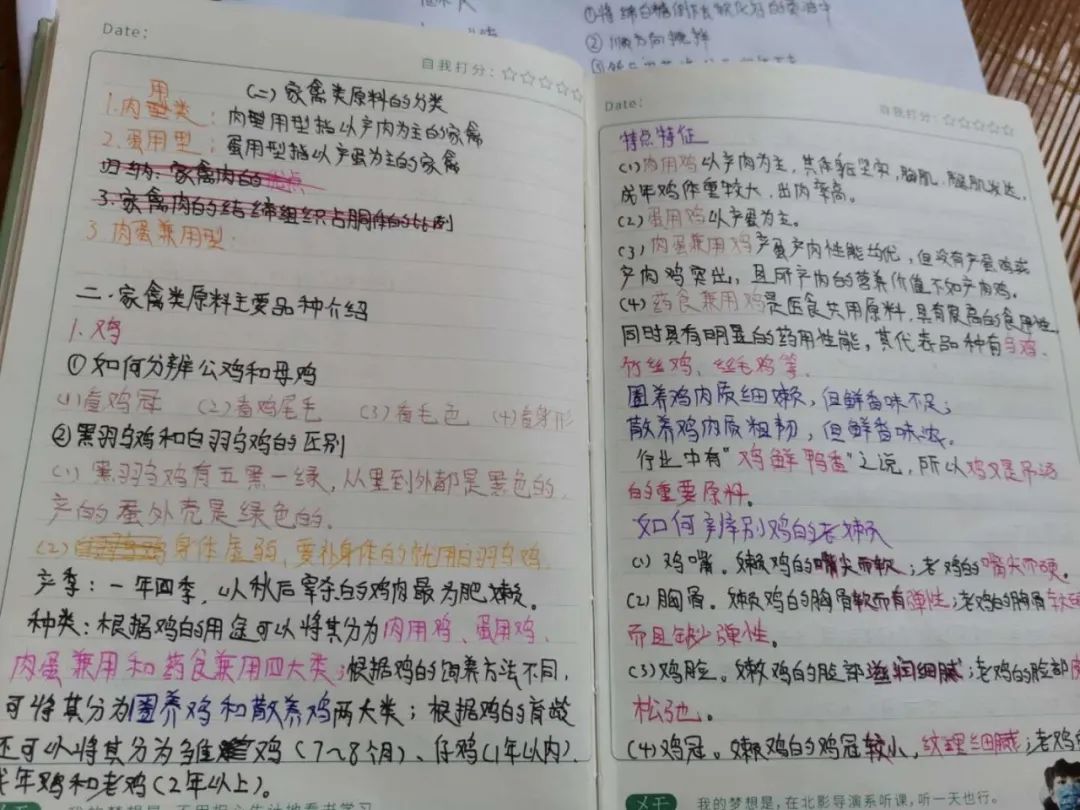 ①将绵白糖倒在软化好的黄油中
②顺方向搅拌
Date:
自我打分：☆☆☆☆☆
(二) 家禽类原料的分类
用
1.肉型类：肉型用型指以产肉为主的家禽
2.蛋用型：蛋用型指以产蛋为主的家禽
归纳：家禽肉的特点
3.家禽肉的结缔组织占胴体的比例
3 肉蛋兼用型.
二.家禽类原料主要品种介绍
1.鸡
①如何分辨公鸡和母鸡
(1)看鸡冠 (2)看鸡尾毛 (3)看毛色 (4)看身形
②黑羽乌鸡和白羽乌鸡的区别
(1) 黑羽乌鸡有五黑一绿，从里到外都是黑色的，
产的蛋外壳是绿色的.
(2) 身体虚弱，要补身体的就用白羽乌鸡
产季：一年四季，以秋后宰杀的鸡肉最为肥嫩。
种类：根据鸡的用途可以将其分为肉用鸡、蛋用鸡、
肉蛋兼用和药食兼用四大类；根据鸡的饲养方法不同，
可将其分为圈养鸡和散养鸡两大类；根据鸡的育龄
还可以将其分为雏鸡（7~8个月）、仔鸡（1年以内）
成年鸡和老鸡（2年以上）。
Date:
自我打分：☆☆☆☆☆
特点特征
(1)肉用鸡以产肉为主，其体躯坚实，胸肌、腿肌发达，
成年鸡体重较大，出肉率高。
(2)蛋用鸡以产蛋为主。
(3)肉蛋兼用鸡产蛋产肉性能均优，但没有产蛋鸡或
产肉鸡突出，且所产肉的营养价值不如产肉鸡。
(4)药食兼用鸡是医食共用原料，具有很高的食用性
同时具有明显的药用性能，其代表品种有乌鸡、
竹丝鸡、丝毛鸡等.
圈养鸡肉质细嫩，但鲜香味不足；
散养鸡肉质粗韧，但鲜香味浓。
行业中有“鸡鲜鸭香”之说，所以鸡又是吊汤
的重要原料。
如何辨别鸡的老嫩
(1) 鸡嘴。嫩鸡的嘴尖而软；老鸡的嘴尖而硬。
(2) 胸骨。嫩鸡的胸骨软而有弹性；老鸡的胸骨
而且缺少弹性。
(3) 鸡脸。嫩鸡的脸部滋润细腻；老鸡的脸部皮
松弛。
(4)鸡冠。嫩鸡的鸡冠较小，纹理细腻；老鸡的
我的梦想是，在北影导演系听课，听一天也行。